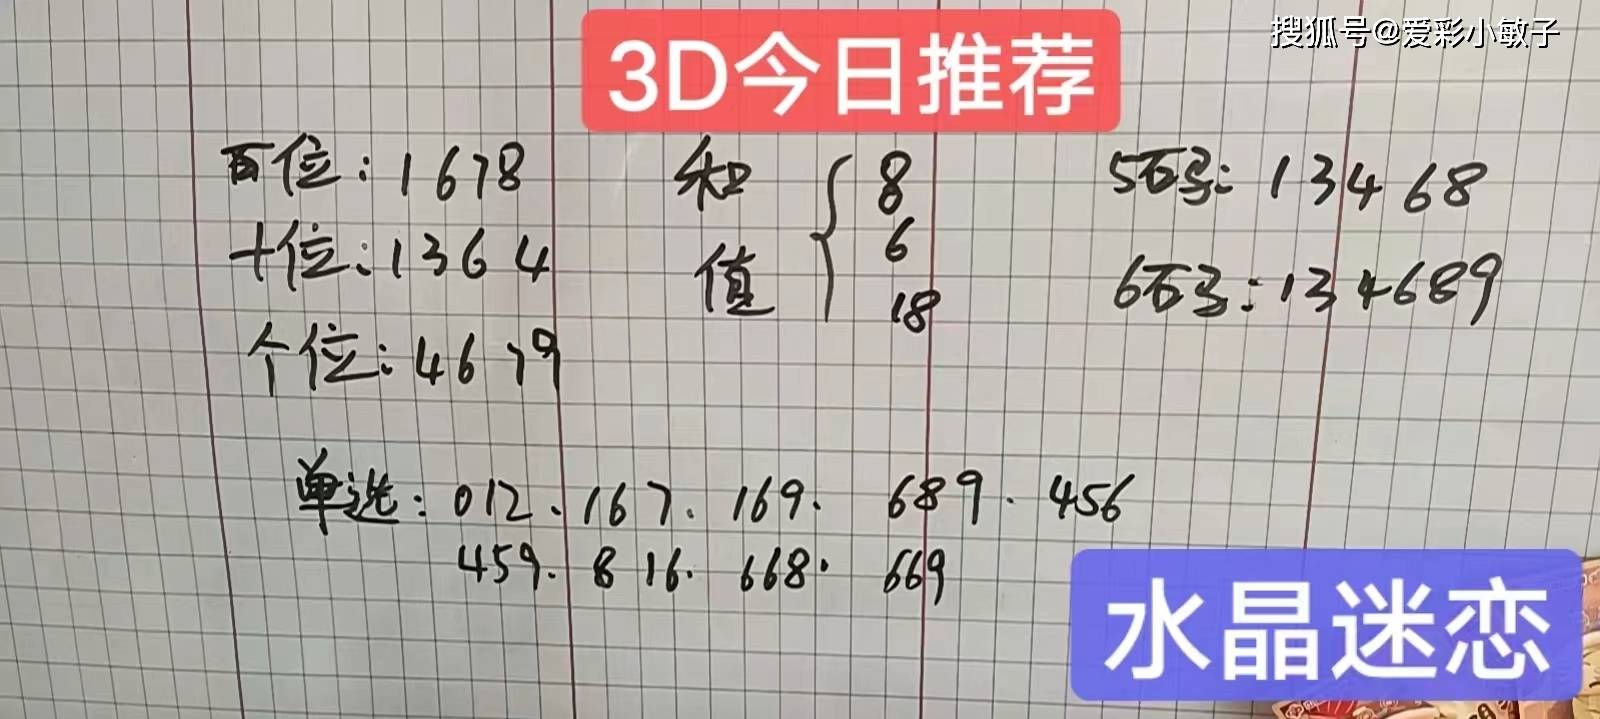 搜狐号@爱彩小敏子
3D今日推荐
百位:1678
十位:1364
个位:4679
和值{8
6
18
5码:13468
6码:134689
单选:012.167.169.689.456
459.816.668.669
水晶迷恋